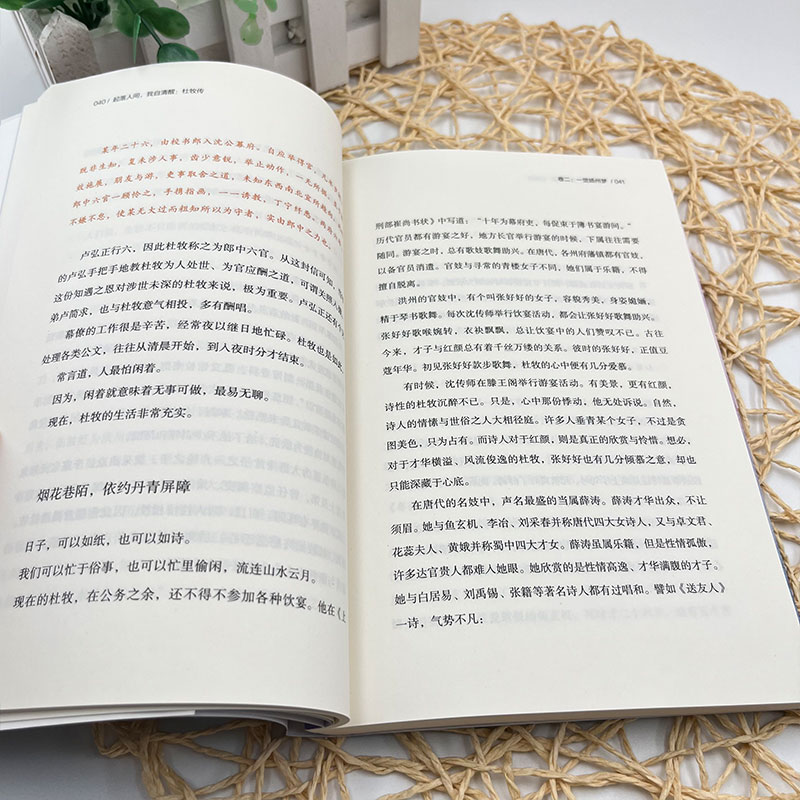 040 / 起落人间，我自清醒：杜牧传
某年二十六，由校书郎入沈公幕府。自应举得官，凡
既非生知，复未涉人事，齿少意锐，举止动作，一无所
效施展，朋友与游，吏事取舍之道，未知东西南北宜所
郎中六官一顾怜之，手携指画，一一诱教，丁宁纤悉。两府
不嫌不怠，使某无大过而粗知所以为守者，实由郎中之力也。
卢弘正行六，因此杜牧称之为郎中六官。从这封信可知，
的卢弘手把手地教杜牧为人处世、为官应酬之道，可谓关照
这份知遇之恩对涉世未深的杜牧来说，极为重要。卢弘正还有个
弟卢简求，也与杜牧意气相投，多有酬唱。
幕僚的工作很是辛苦，经常夜以继日地忙碌。杜牧也是如此，
处理各类公文，往往从清晨开始，到入夜时分才结束。
常言道，人最怕闲着。
因为，闲着就意味着无事可做，最易无聊。
现在，杜牧的生活非常充实。
烟花巷陌，依约丹青屏障
日子，可以如纸，也可以如诗。
我们可以忙于俗事，也可以忙里偷闲，流连山水云月。
现在的杜牧，在公务之余，还不得不参加各种饮宴。他在《上
卷二：一觉扬州梦 / 041
刑部崔尚书状》中写道：“十年为幕府吏，每促束于簿书宴游间。”
历代官员都有游宴之好，地方长官举行游宴的时候，下属往往需要
随同。游宴之时，总有歌妓歌舞助兴。在唐代，各州府藩镇都有官妓，
以备官员消遣。官妓与寻常的青楼女子不同，她们属于乐籍，不得
擅自脱离。
洪州的官妓中，有个叫张好好的女子，容貌秀美，身姿婀娜，
精于琴书歌舞。每次沈传师举行饮宴活动，都会让张好好歌舞助兴。
张好好歌喉婉转，衣袂飘飘，总让饮宴中的人们赞叹不已。古往
今来，才子与红颜总有着千丝万缕的关系。彼时的张好好，正值豆
蔻年华。初见张好好款步歌舞，杜牧的心中便有几分爱慕。
有时候，沈传师在滕王阁举行游宴活动。有美景，更有红颜，
诗性的杜牧沉醉不已。只是，心中那份悸动，他无处诉说。自然，
诗人的情愫与世俗之人大相径庭。许多人垂青某个女子，不过是贪
图美色，只为占有。而诗人对于红颜，则是真正的欣赏与怜惜。想必，
对于才华横溢、风流俊逸的杜牧，张好好也有几分倾慕之意，却也
只能深藏于心底。
在唐代的名妓中，声名最盛的当属薛涛。薛涛才华出众，不让
须眉。她与鱼玄机、李冶、刘采春并称唐代四大女诗人，又与卓文君、
花蕊夫人、黄娥并称蜀中四大才女。薛涛虽属乐籍，但是性情孤傲，
许多达官贵人都难入她眼。她欣赏的是性情高逸、才华满腹的才子。
她与白居易、刘禹锡、张籍等著名诗人都有过唱和。譬如《送友人》
一诗，气势不凡：